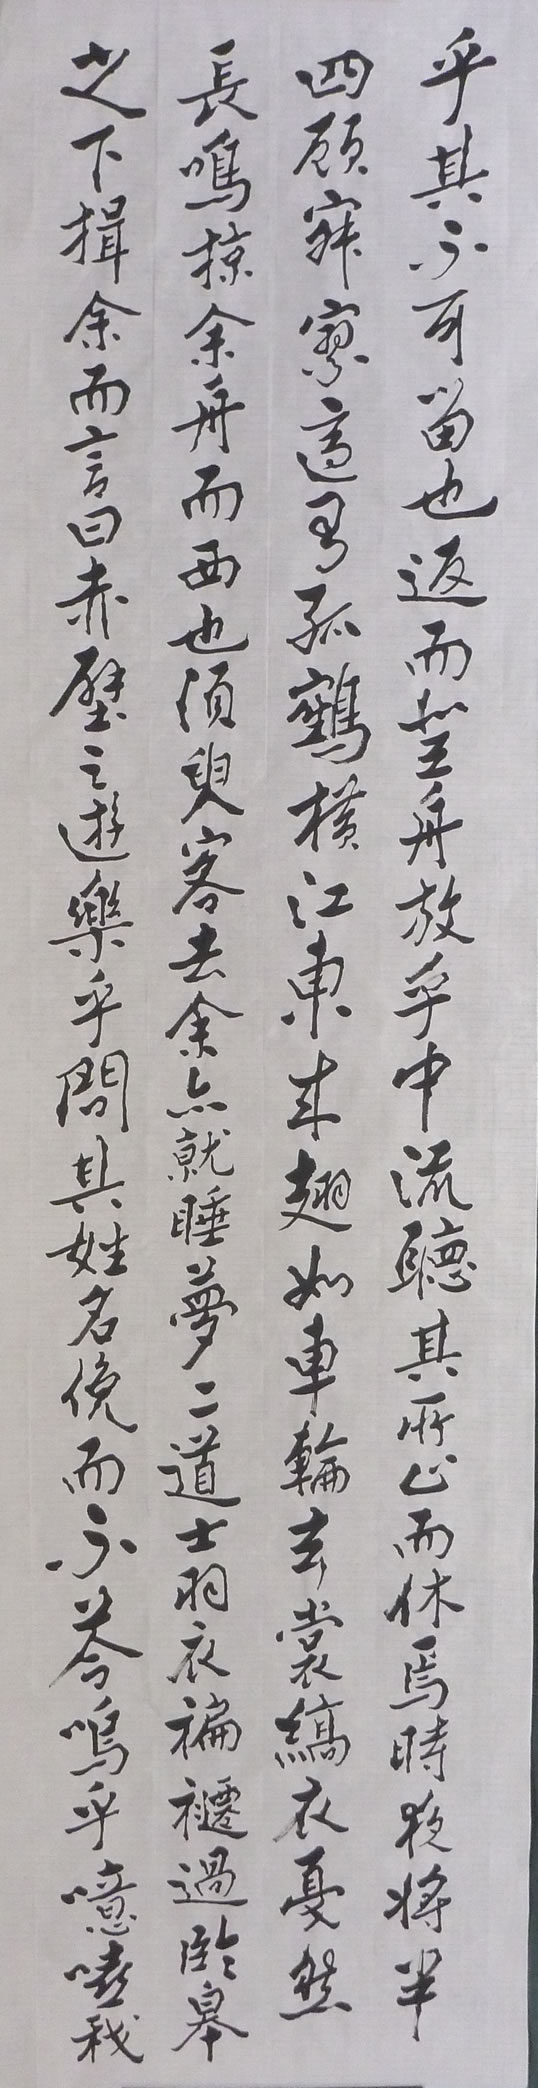 乎其不可留也返而登舟放乎中流聽其所止而休焉時夜將半
四顧寂寥適有孤鶴橫江東來翅如車輪玄裳縞衣戛然
長鳴掠余舟而西也須臾客去余亦就睡夢二道士羽衣褊褼過臨皋
之下揖余而言曰赤壁之遊樂乎問其姓名俛而不答嗚乎噫嘻我